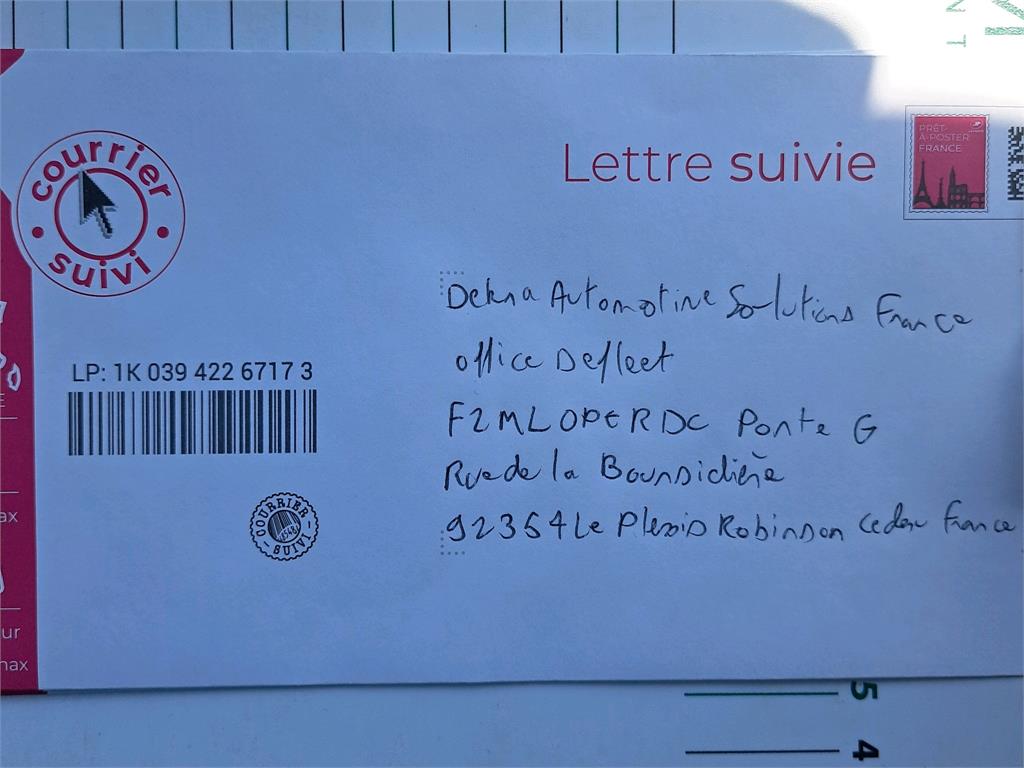 courrier
suivi
Lettre suivie
PRÊT-
À-POSTER
FRANCE
Dekra Automotive Solutions France
office Deflect
LP: 1K 039 422 6717 3
F2MLOPERDC Porte G
Rue de la Boursidière
92354 Le Plessis Robinson Cedex France
COURRIER
SUIVI
E
ax
ur
max
5
4